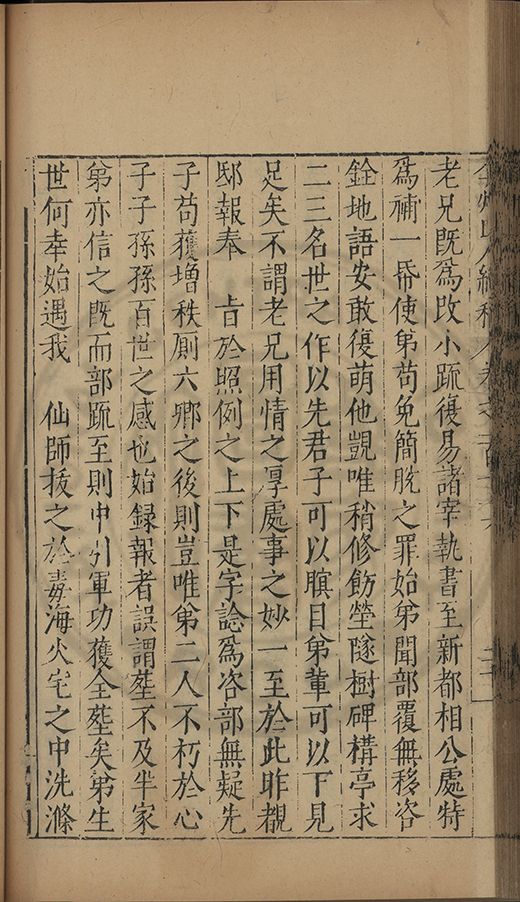 弇州山人續稿
老兄既爲改小疏復易諸宰執書至新都相公處特
爲補一帋使弟苟免簡脫之罪始弟聞部覆無移咨
銓地語安敢復萌他覬唯稍修飭塋隧樹碑構亭求
二三名世之作以先君子可以瞑目弟輩可以下見
足矣不謂老兄用情之厚處事之妙一至於此昨覩
邸報奉　旨於照例之上下是字諗爲咨部無疑先
子苟獲增秩厠六卿之後則豈唯弟二人不朽於心
子子孫孫百世之感也始録報者誤謂塟不及半家
弟亦信之既而部疏至則中引軍功獲全塟矣弟生
世何幸始遇我　仙師拔之於毒海火宅之中洗滌